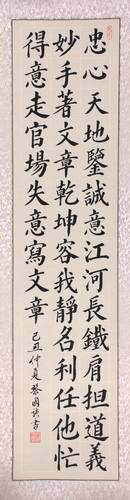 忠心天地鑒誠意江河長鐵肩担道義
妙手著文章乾坤容我靜名利任他忙
得意走官場失意寫文章
己丑仲夏黎國書